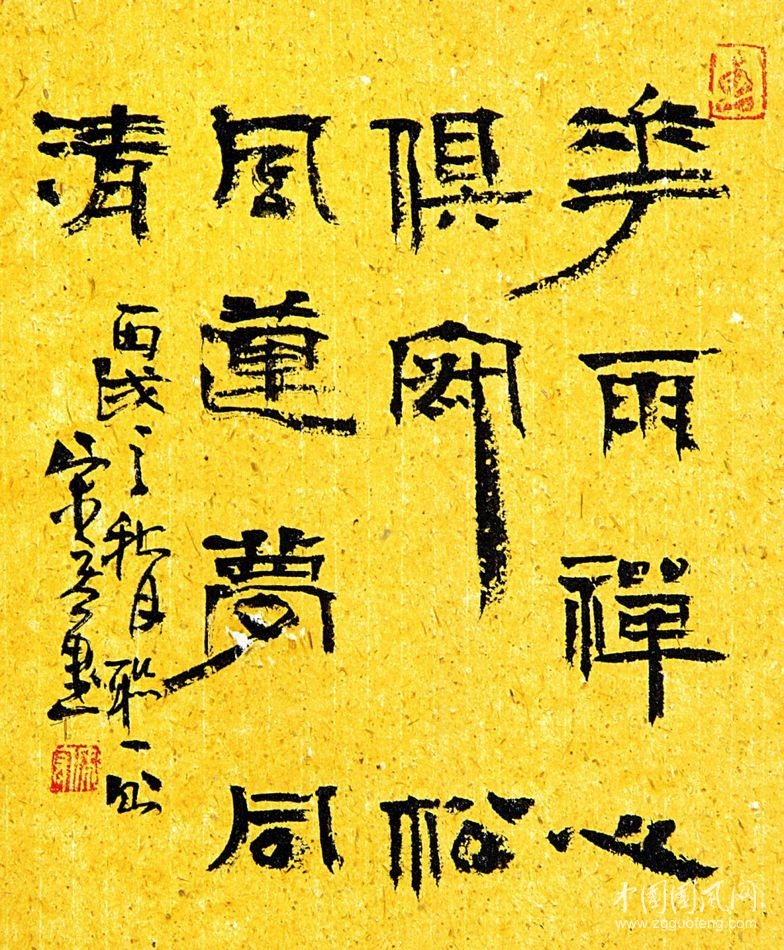 華雨禪心
俱寂松
風蓮夢同
清
丙戌之秋月聯一
墨
中国国风网
www.zgguofeng.com